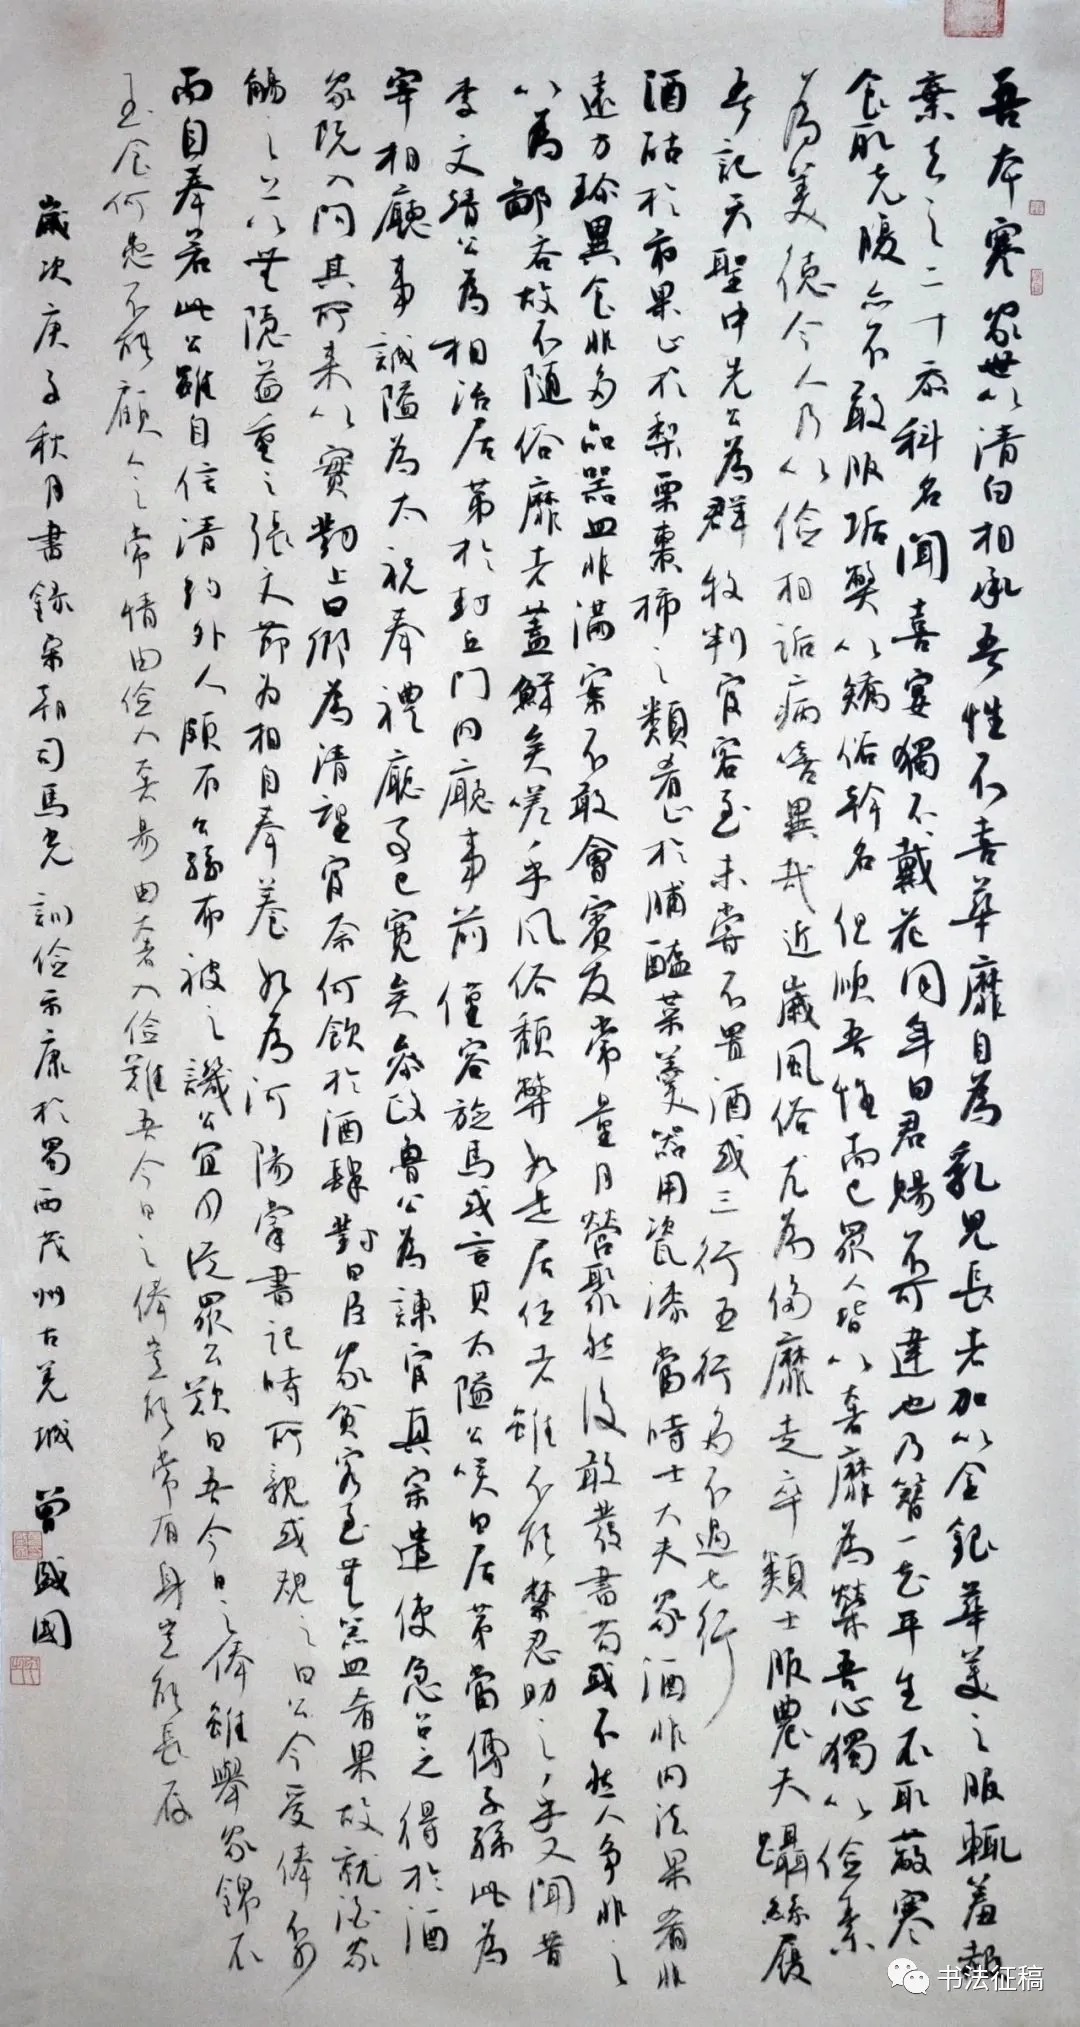 吾本寒家世以清白相承吾性不喜華靡自為乳兒長者加以金銀華美之服輒羞赧
棄去之二十忝科名聞喜宴獨不戴花同年曰君賜不可違也乃簪一花平生衣取蔽寒
食取充腹亦不敢服垢弊以矯俗幹名但順吾性而已眾人皆以奢靡為榮吾心獨以儉素
為美德今人乃以儉相詬病嘻異哉近歲風俗尤為侈靡走卒類士服農夫躡絲履
吾記天聖中先公為群牧判官客至未嘗不置酒或三行五行多不過七行
酒酤於市果止於梨栗棗柿之類肴止於脯醢菜羹器用瓷漆當時士大夫家酒非內法果肴非
遠方珍異食非多品器皿非滿案不敢會賓友常量月營聚然後敢發書苟或不然人爭非之
以為鄙吝故不隨俗靡者蓋鮮矣嗟乎風俗頹弊如是居位者雖不能禁忍助之乎又聞昔
李文靖公為相治居第於封丘門內廳事前僅容旋馬或言其太隘公笑曰居第當傳子孫此為
宰相廳事誠隘為太祝奉禮廳事已寬矣參政魯公為諫官真宗遣使急召之得於酒
家既入問其所來以實對上曰卿為清望官奈何飲於酒肆對曰臣家貧客至無器皿肴果故就酒家
觴之上以無隱益重之張文節為相自奉養如為河陽掌書記時所親或規之曰公今受俸不少
而自奉若此公雖自信清約外人頗有公孫布被之譏公宜少從眾公歎曰吾今日之俸雖舉家錦衣
玉食何患不能顧人之常情由儉入奢易由奢入儉難吾今日之俸豈能常有身豈能長存
歲次庚子秋月書錄宋朝司馬光訓儉示康於蜀西茂州古羌城 曾盛國
书法征稿